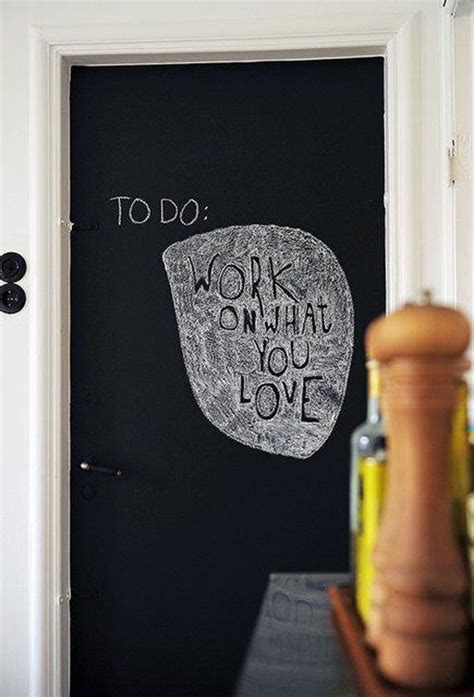 TO DO:
WORK
ON WHAT
YOU
LOVE